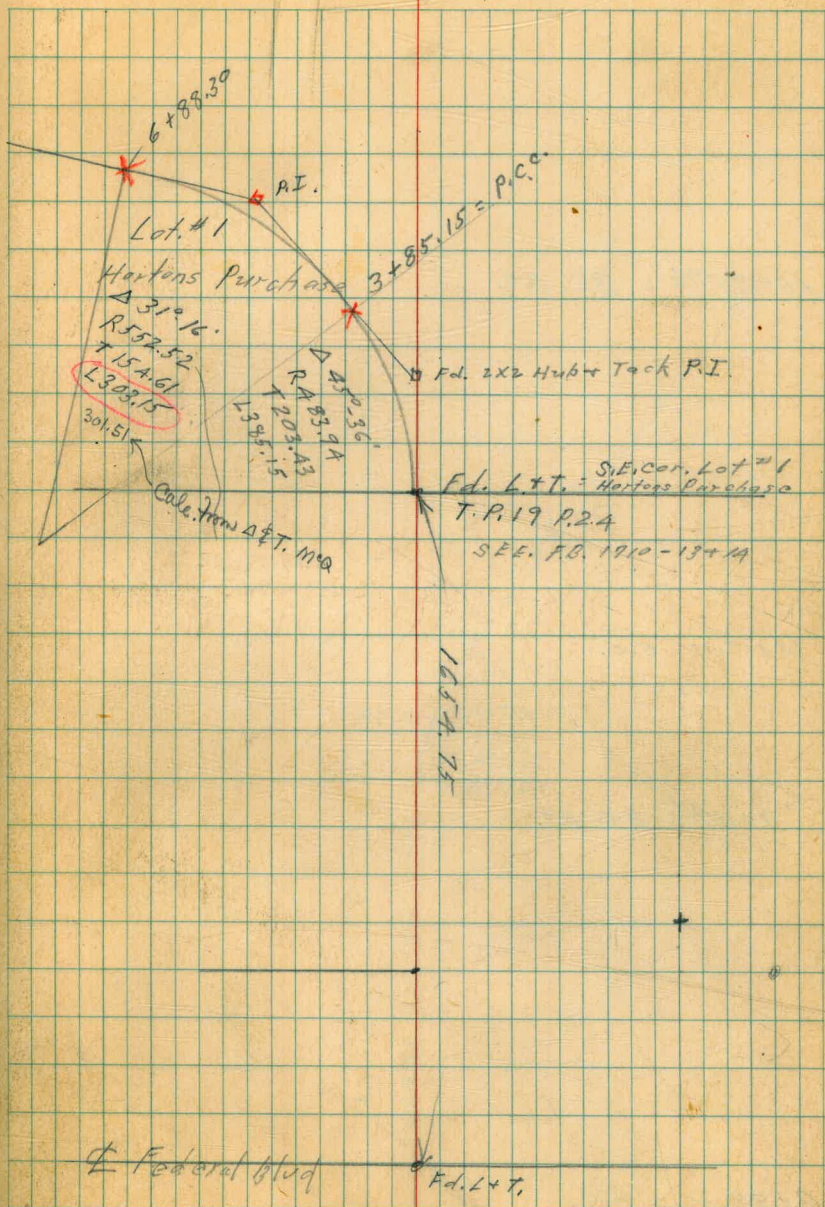 6+88.30
P.I.
Lot. #1
Hortons Purchase
3+85.15 = P.C.C.
Δ 31°.16'
R 552.52
T 154.61
L 303.15
301.51
Calc. from Δ & T. McQ
Δ 45°-36'
R 483.94
T 203.43
L 385.15
Fd. 2x2 Hub + Tack P.I.
Fd. L.+T. = S.E. Cor. Lot #1
Hortons Purchase
T.P. 19 P. 24
SEE. F.B. 1710 - 13+14
1654.75
℄ Federal Blvd
Fd. L+T.